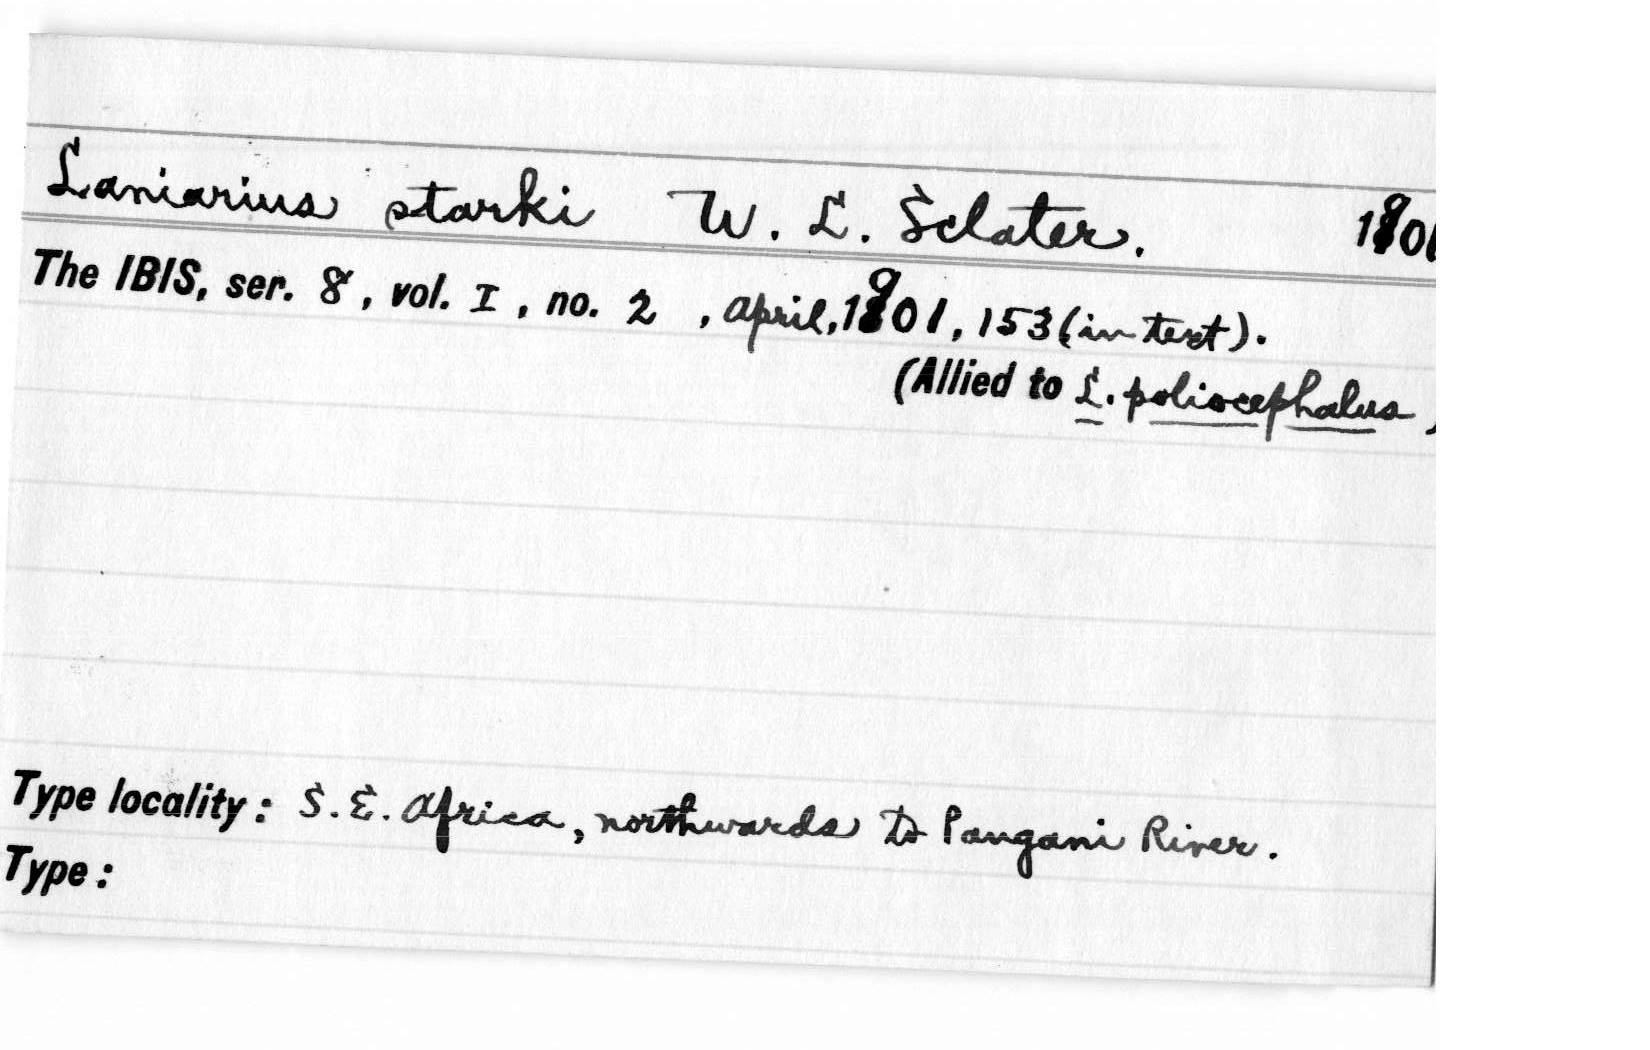 Laniarius starki W. L. Sclater. 1901
The IBIS, ser. 8, vol. I, no. 2, April, 1901, 153 (in text).
(Allied to L. poliocephalus)
Type locality: S. E. Africa, northwards to Pangani River.
Type: